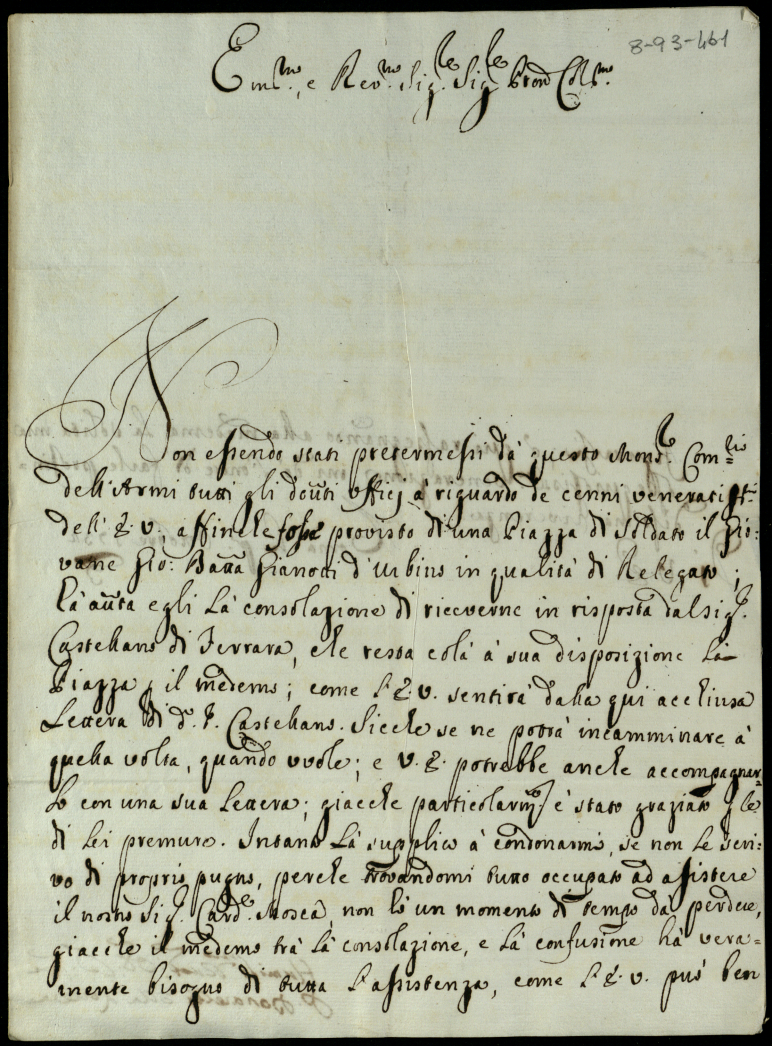 8-93-461
Em.mo, e Rev.mo Sig.re Sig.re Pron Coll.mo
Non essendo stati pretermessi dà questo Mons.re Com.rio
dell'Armi tutti gli douti officj à riguardo de cenni venerati.ssi
dell'E. V., affinche fosse provisto di una Piazza di Soldato il Gio:
vane Gio: Batta Gianotti d'Urbino in qualità di Relegato;
hà auuta egli la consolazione di riceverne in risposta dal Sig.r
Castellano di Ferrara, che resta colà à sua disposizione la
Piazza p il medemo; come l'E. V. sentirà dalla qui acchiusa
Lettera di d.o S. Castellano. Sicche se ne potrà incamminare à
quella volta, quando vuole; e V. E. potrebbe anche accompagnar=
lo con una sua Lettera; giacche particolarm.te è stato graziato p le
di Lei premure. Intanto la supplico à condonarmi, se non le scri=
vo di proprio pugno, perche trovandomi tutto occupato ad assistere
il nostro Sig.r Card.e Mosca, non hò un momento di tempo dà perdere,
giacche il medemo trà la consolazione, e la confusione hà vera=
mente bisogno di tutta l'assistenza, come l'E. V. può ben